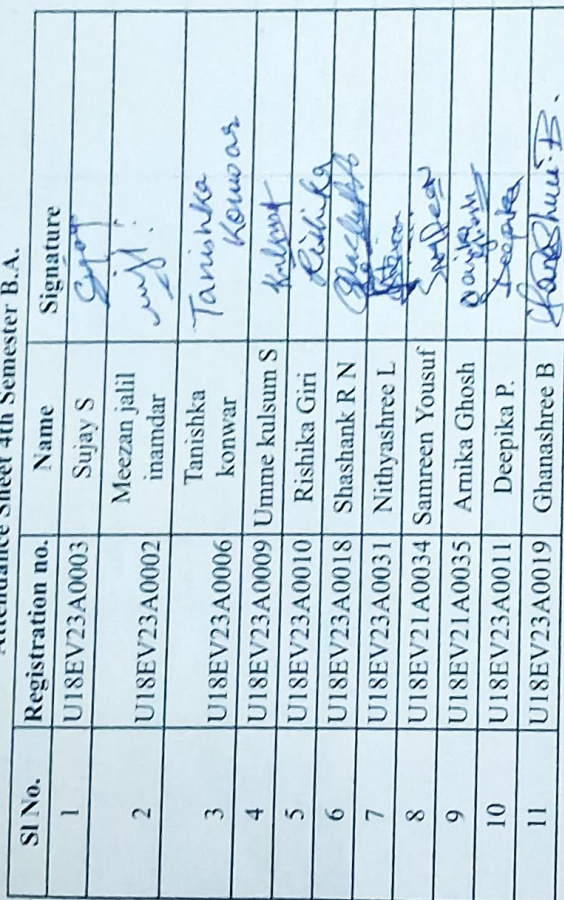 Attendance Sheet 4th Semester B.A.
Sl No. Registration no. Name Signature
1 U18EV23A0003 Sujay S
2 U18EV23A0002 Meezan jalil
inamdar
3 U18EV23A0006 Tanishka
konwar Tanishka
Konwar
4 U18EV23A0009 Umme kulsum S Kulsum
5 U18EV23A0010 Rishika Giri Rishika
6 U18EV23A0018 Shashank R N
7 U18EV23A0031 Nithyashree L
8 U18EV21A0034 Samreen Yousuf
9 U18EV21A0035 Arnika Ghosh
10 U18EV23A0011 Deepika P. Deepika
11 U18EV23A0019 Ghanashree B Ghanashree.B.